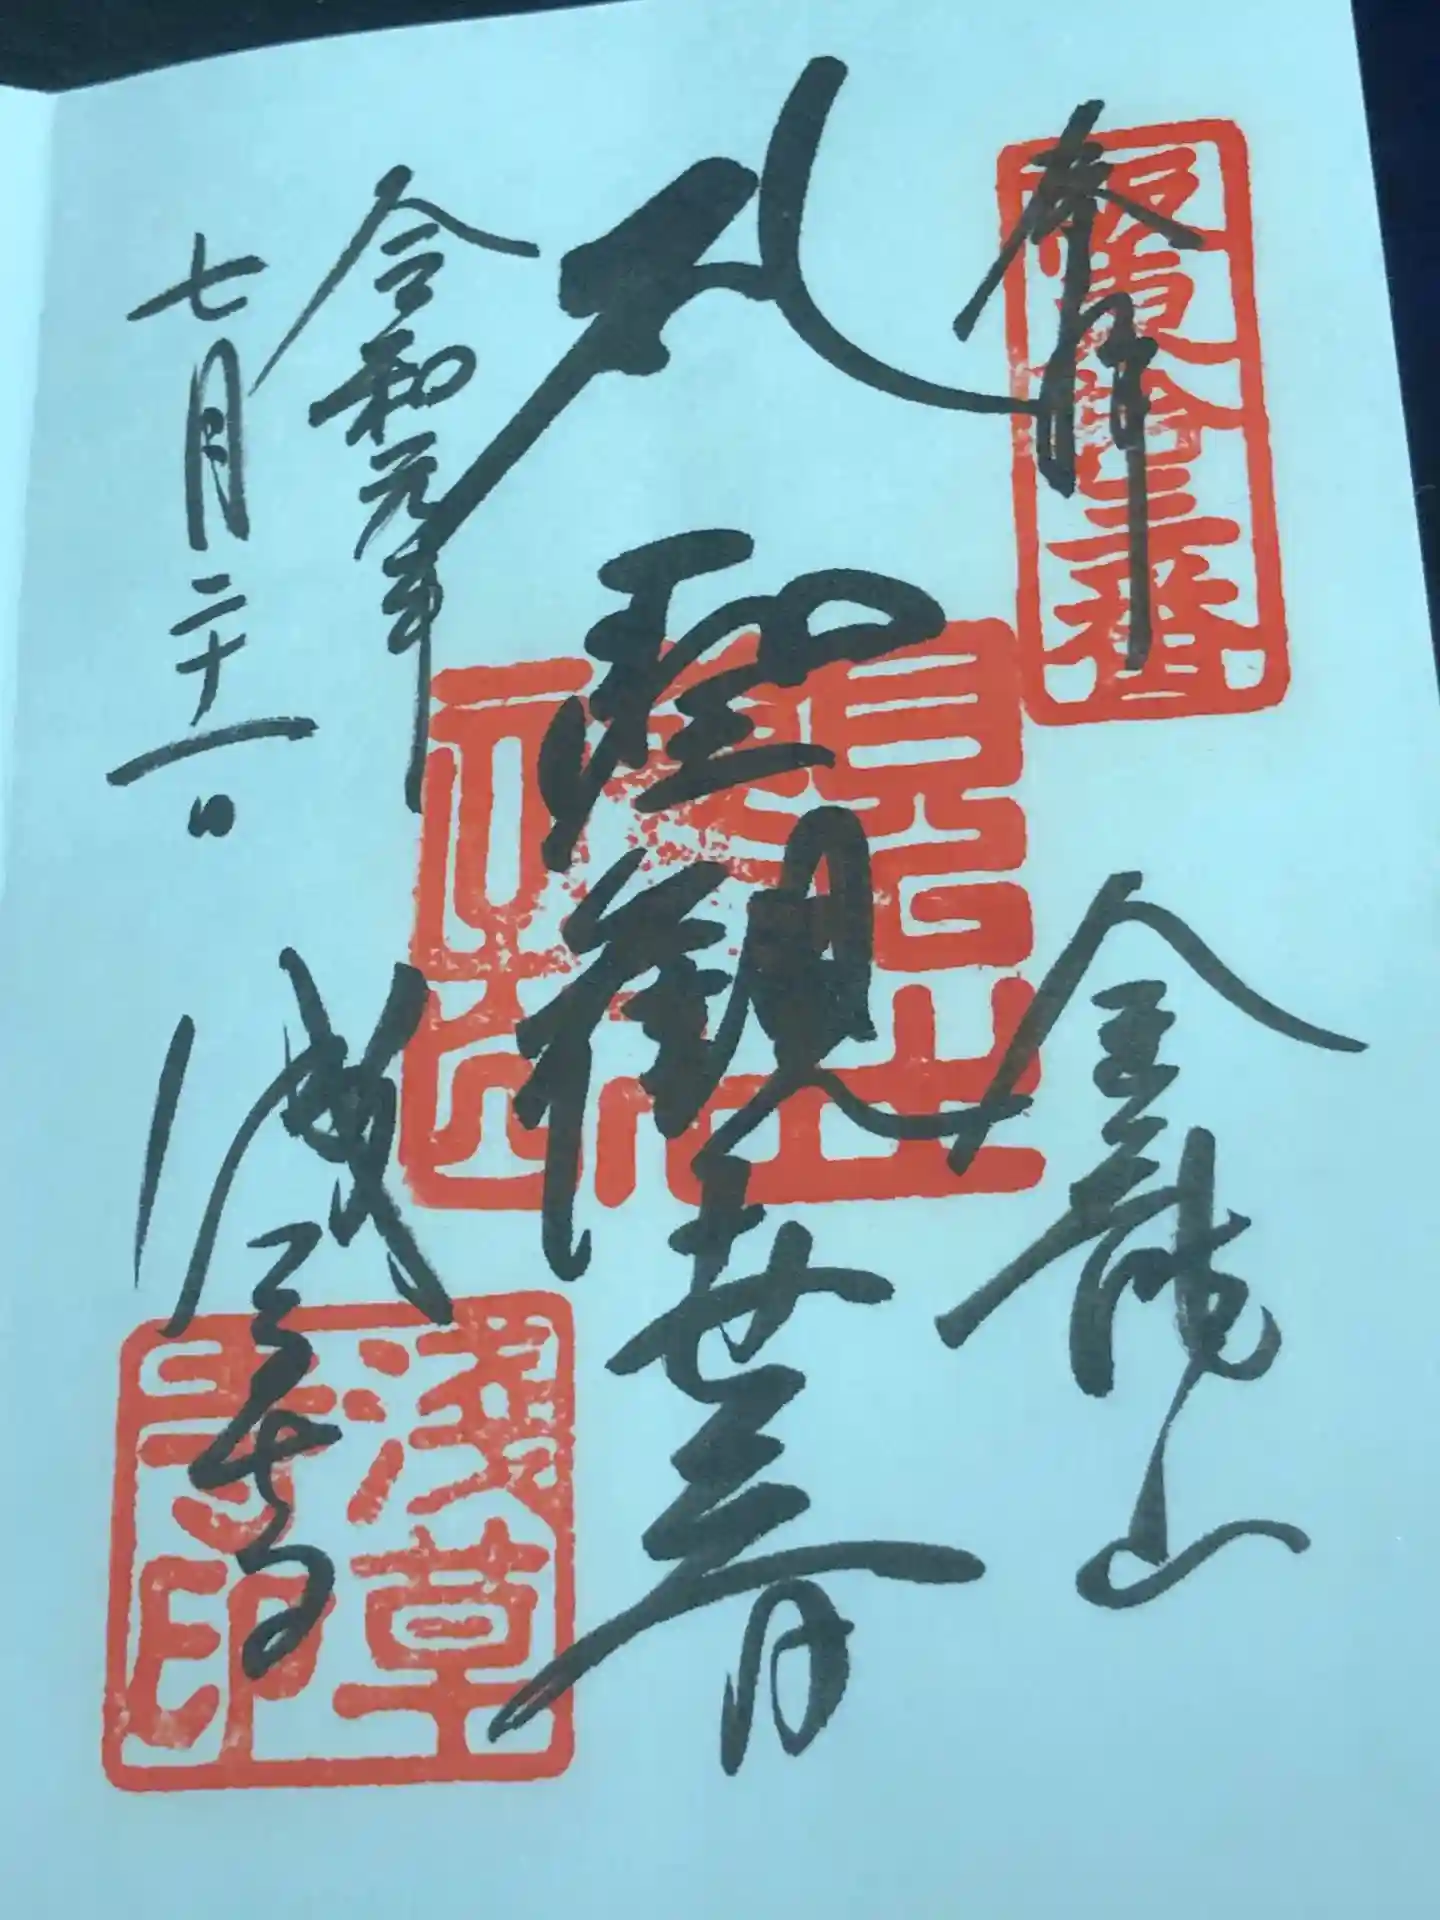 奉拝
坂東拾三番
金龍山
聖観世音
令和元年
七月二十一日
浅草寺
浅草
寺印